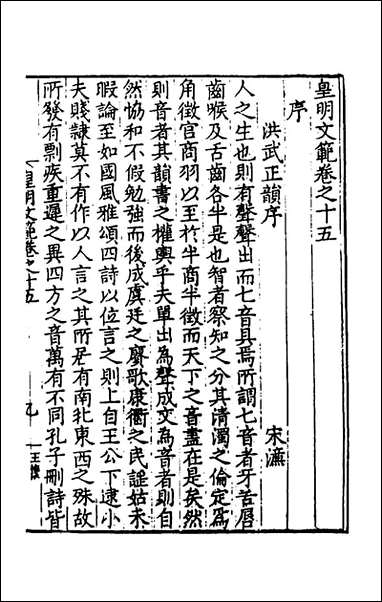 皇明文範卷之十五
序
洪武正韻序
宋濂
人之生也則有聲聲出而七音具焉所謂七音者牙舌唇
齒喉及舌齒各半是也智者察知之分其清濁之倫定爲
角徵宫商羽以至於半商半徵而天下之音盡在是矣然
則音者其韻書之權輿乎夫單出為聲成文為音音則自
然恊和不假勉強而後成虞廷之賡歌康衢之民謡姑未
暇論至如國風雅頌四詩以位言之則上自王公下逮小
夫賤隸莫不有作以人言之其所居有南北東西之殊故
所發有剽疾重遲之異四方之音萬有不同孔子刪詩皆
皇明文範卷之十五